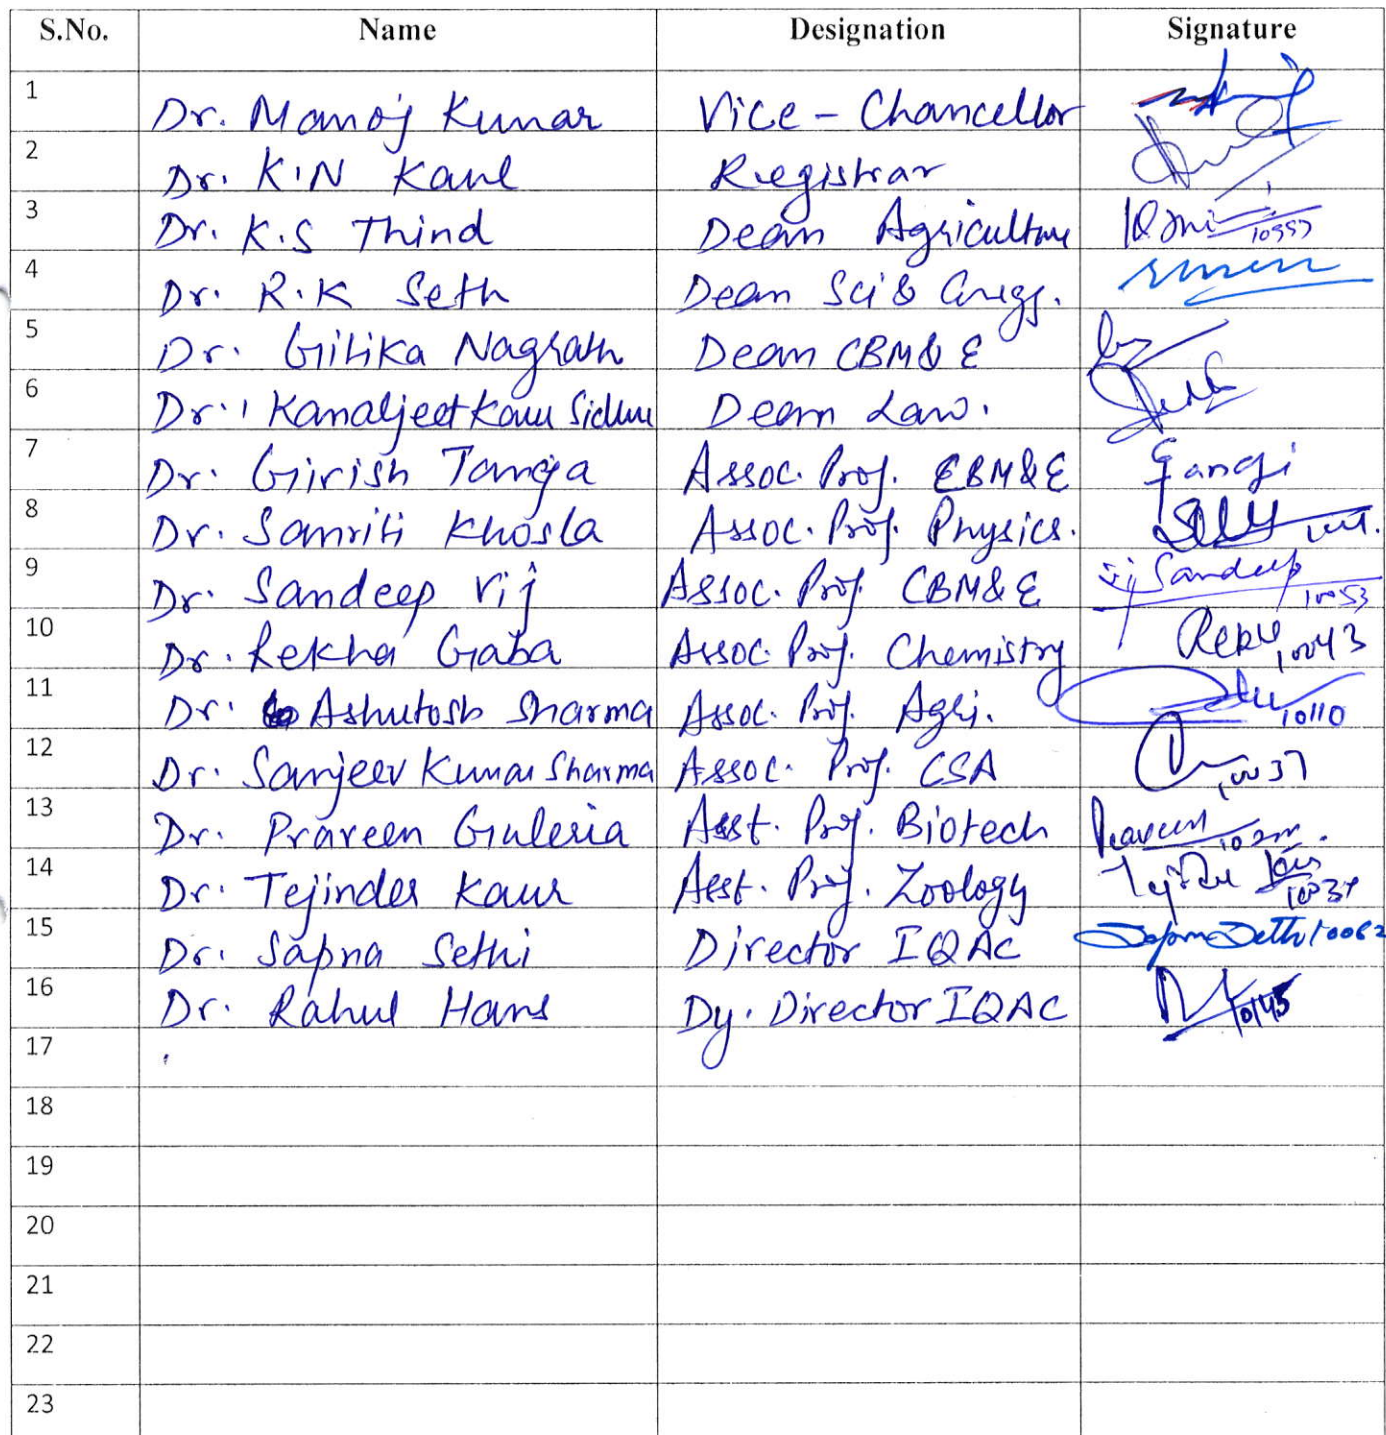 S.No. Name Designation Signature
1 Dr. Manoj Kumar Vice-Chancellor
2 Dr. K.N Kaul Registrar
3 Dr. K.S Thind Dean Agriculture
4 Dr. R.K Seth Dean Sci & Engg.
5 Dr. Gitika Nagrath Dean CBM& E
6 Dr. Kamaljeet Kaur Sidhu Dean Law.
7 Dr. Girish Taneja Assoc. Prof. CBM&E
8 Dr. Samriti Khosla Assoc. Prof. Physics.
9 Dr. Sandeep Vij Assoc. Prof. CBM& E Sandeep 10053
10 Dr. Rekha Gaba Assoc. Prof. Chemistry 10043
11 Dr. Ashutosh Sharma Assoc. Prof. Agri. 10110
12 Dr. Sanjeev Kumar Sharma Assoc. Prof. CSA 10037
13 Dr. Praveen Guleria Asst. Prof. Biotech Praveen
14 Dr. Tejinder Kaur Asst. Prof. Zoology
15 Dr. Sapna Sethi Director IQAC Sapna Sethi 10062
16 Dr. Rahul Hans Dy. Director IQAC 10145
17
18
19
20
21
22
23